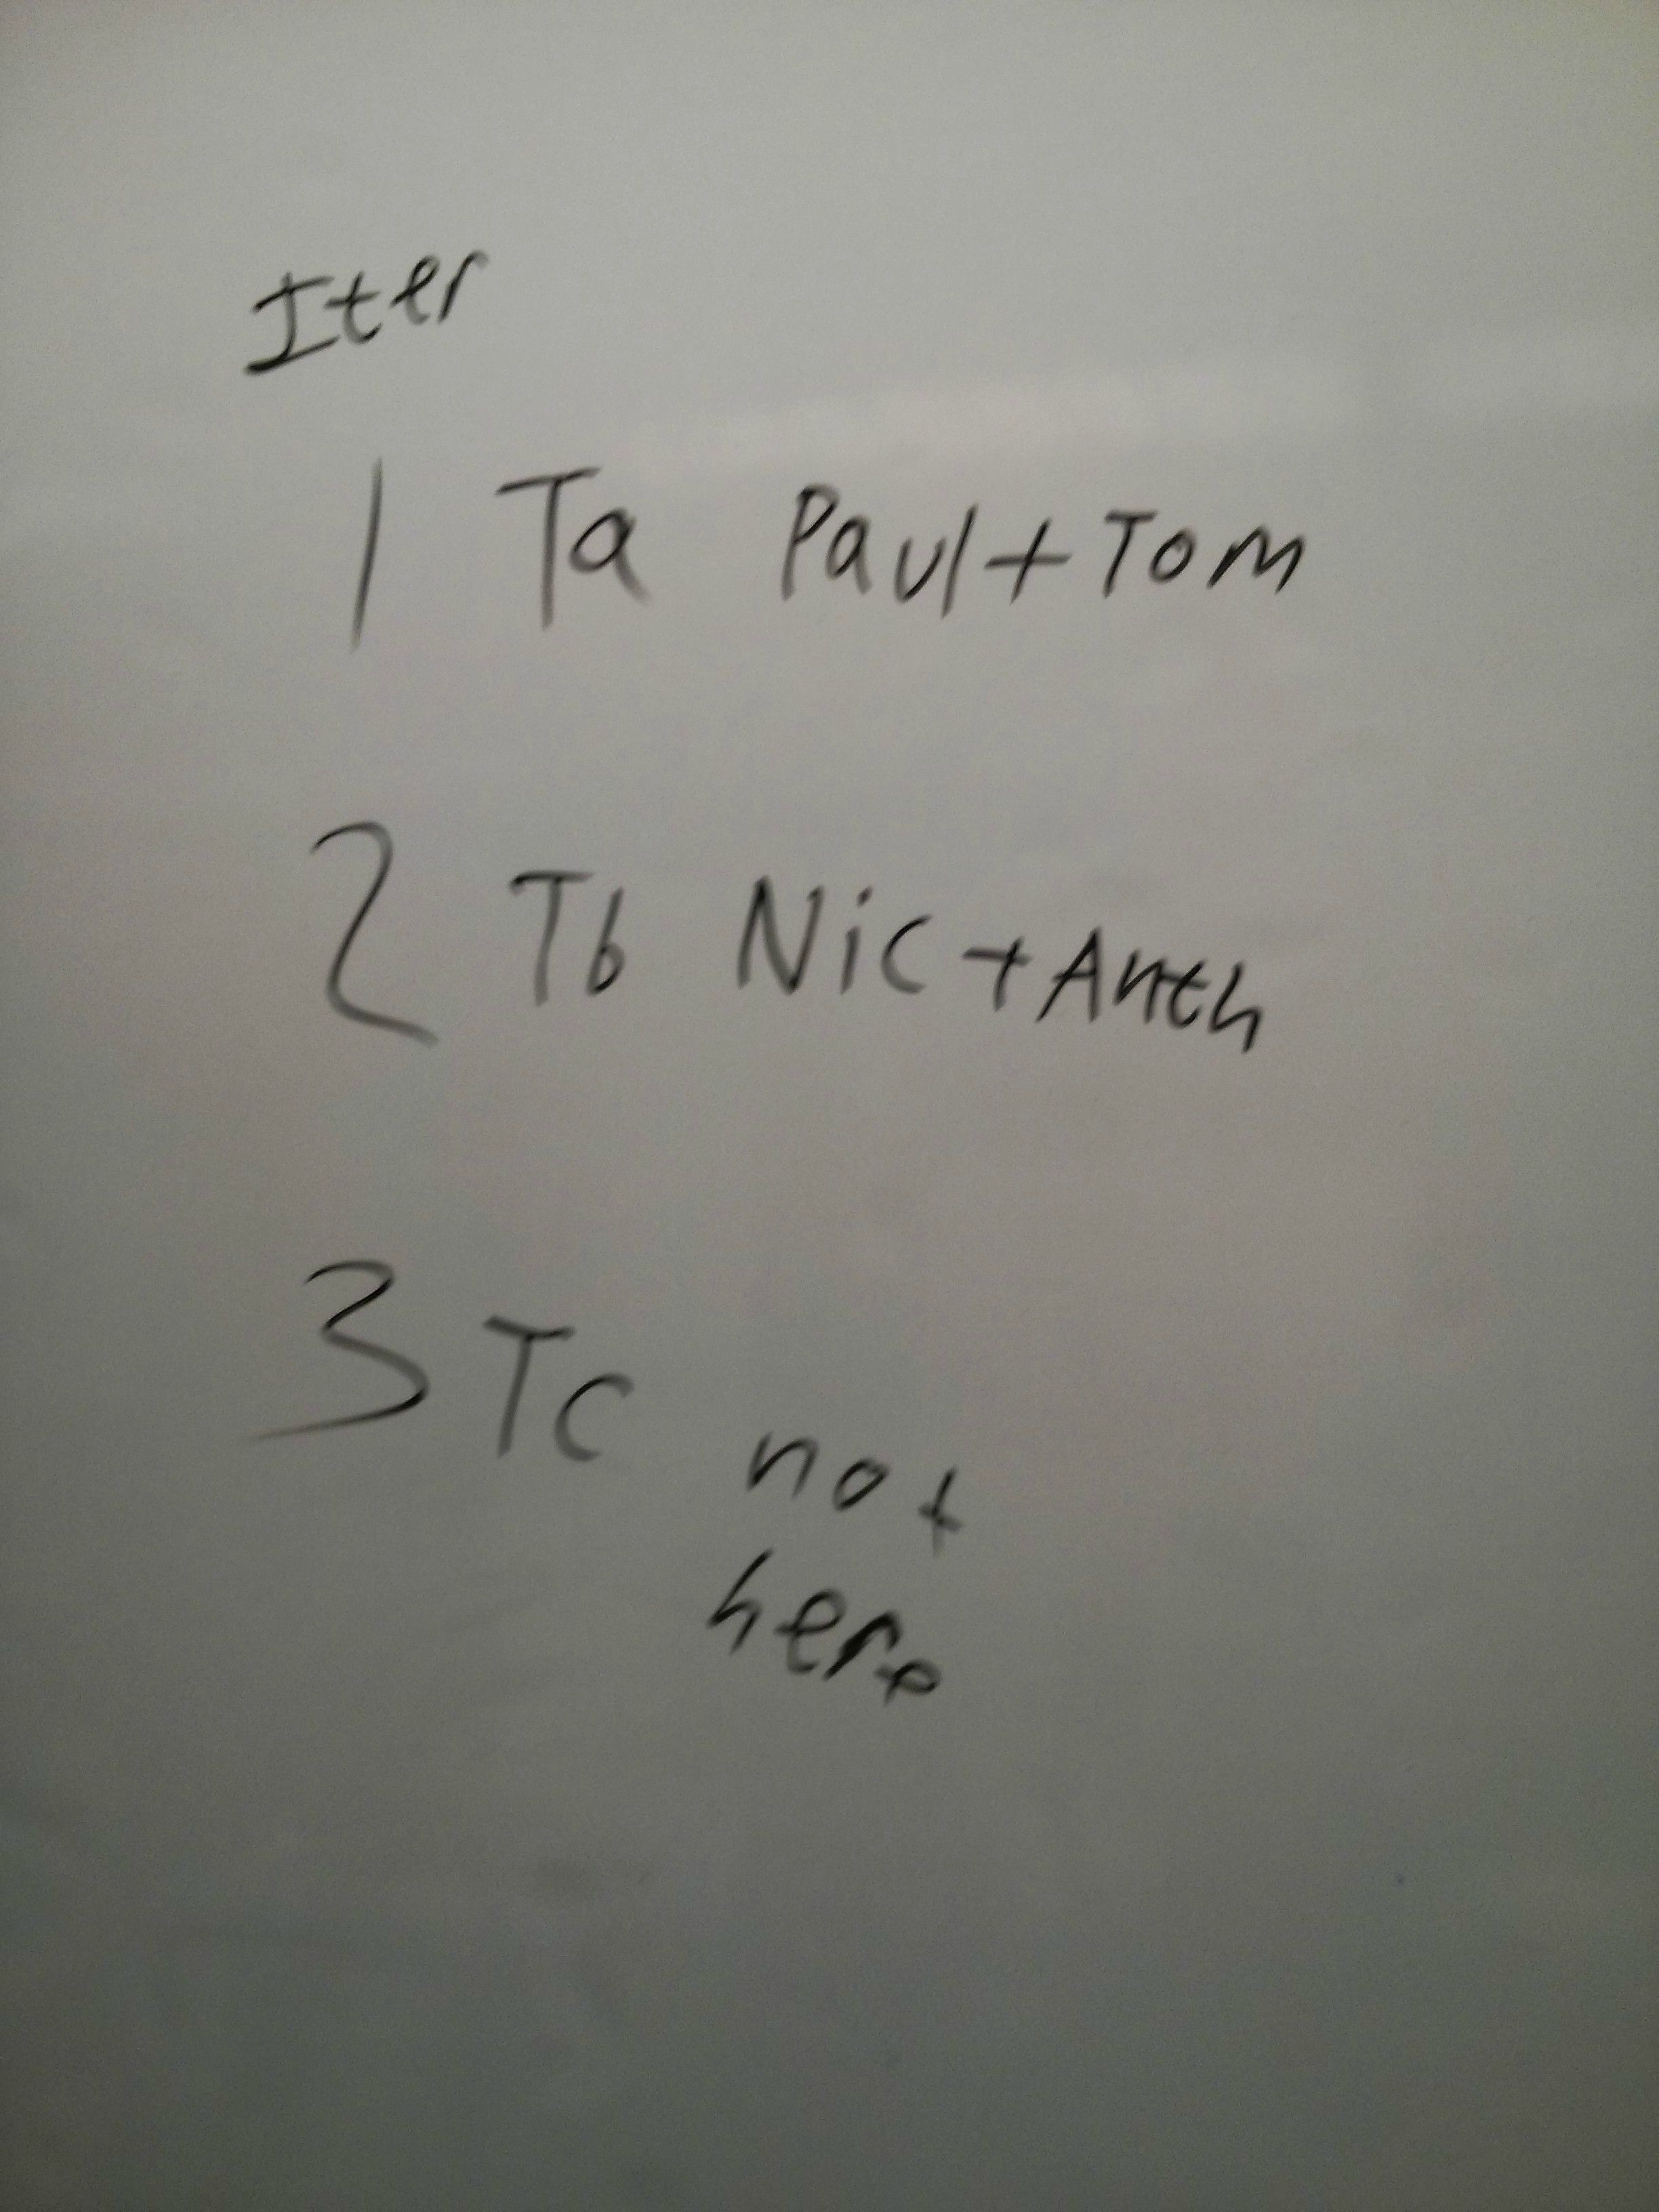 Iter
1 Ta Paul+Tom
2 Tb Nic+Anth
3 Tc not
here